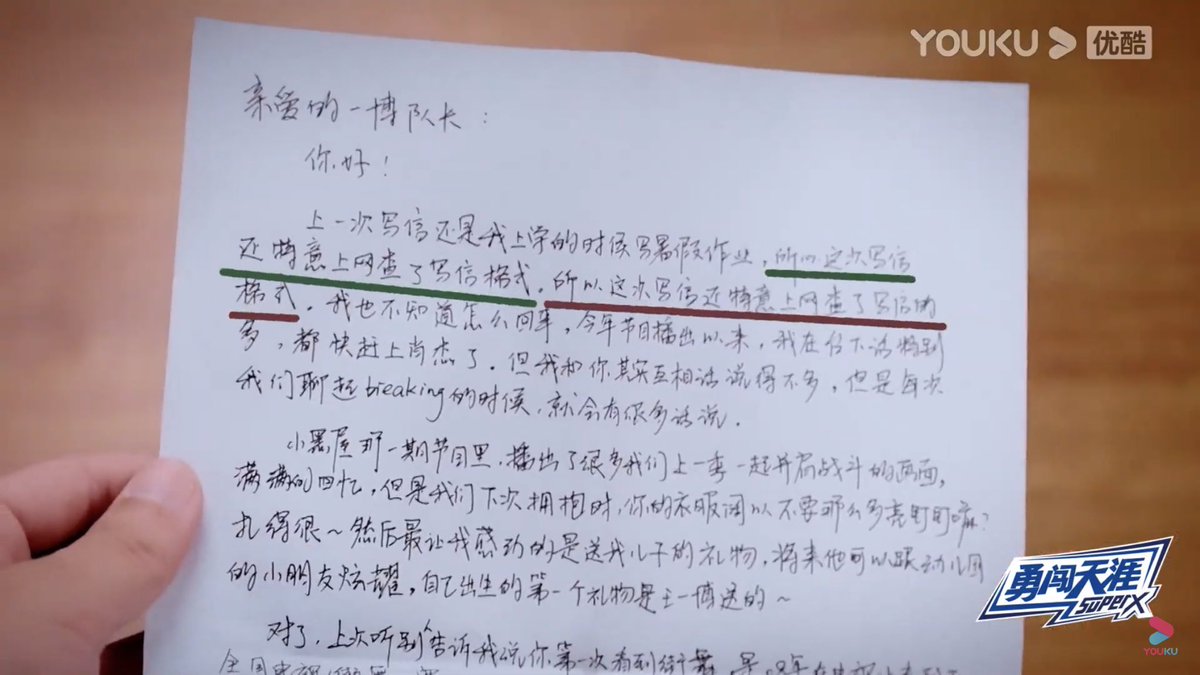 YOUKU 优酷
亲爱的一博队长：
你好！
上一次写信还是我上学的时候写暑假作业，所以这次写信
还特意上网查了写信格式。所以这次写信还特意上网查了写信的
格式。我也不知道怎么回事，今年节目播出以来，我在台下话特别
多，都快赶上肖杰了。但我和你其实互相话说得不多，但是每次
我们聊起breaking的时候，就会有很多话说。
小黑屋那一期节目里，播出了很多我们上一季一起并肩战斗的画面，
满满的回忆，但是我们下次拥抱时，你的衣服阔以不要那么多亮钉钉嘛？
扎得很～然后最让我感动的是送我儿子的礼物，将来他可以跟幼儿园
的小朋友炫耀，自己出生的第一个礼物是王一博送的～
对了，上次听别人告诉我说你第一次看到街舞，是
勇闯天涯
superX
YOUKU